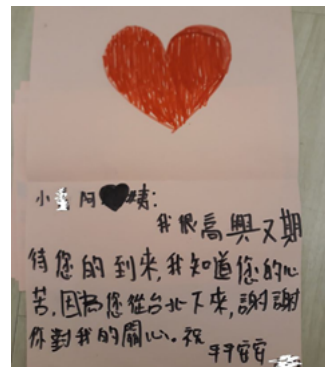 小 阿姨:
我很高興又期
待您的到來,我知道您的心
苦,因為您從台北下來,謝謝
你對我的關心。祝
平平安安